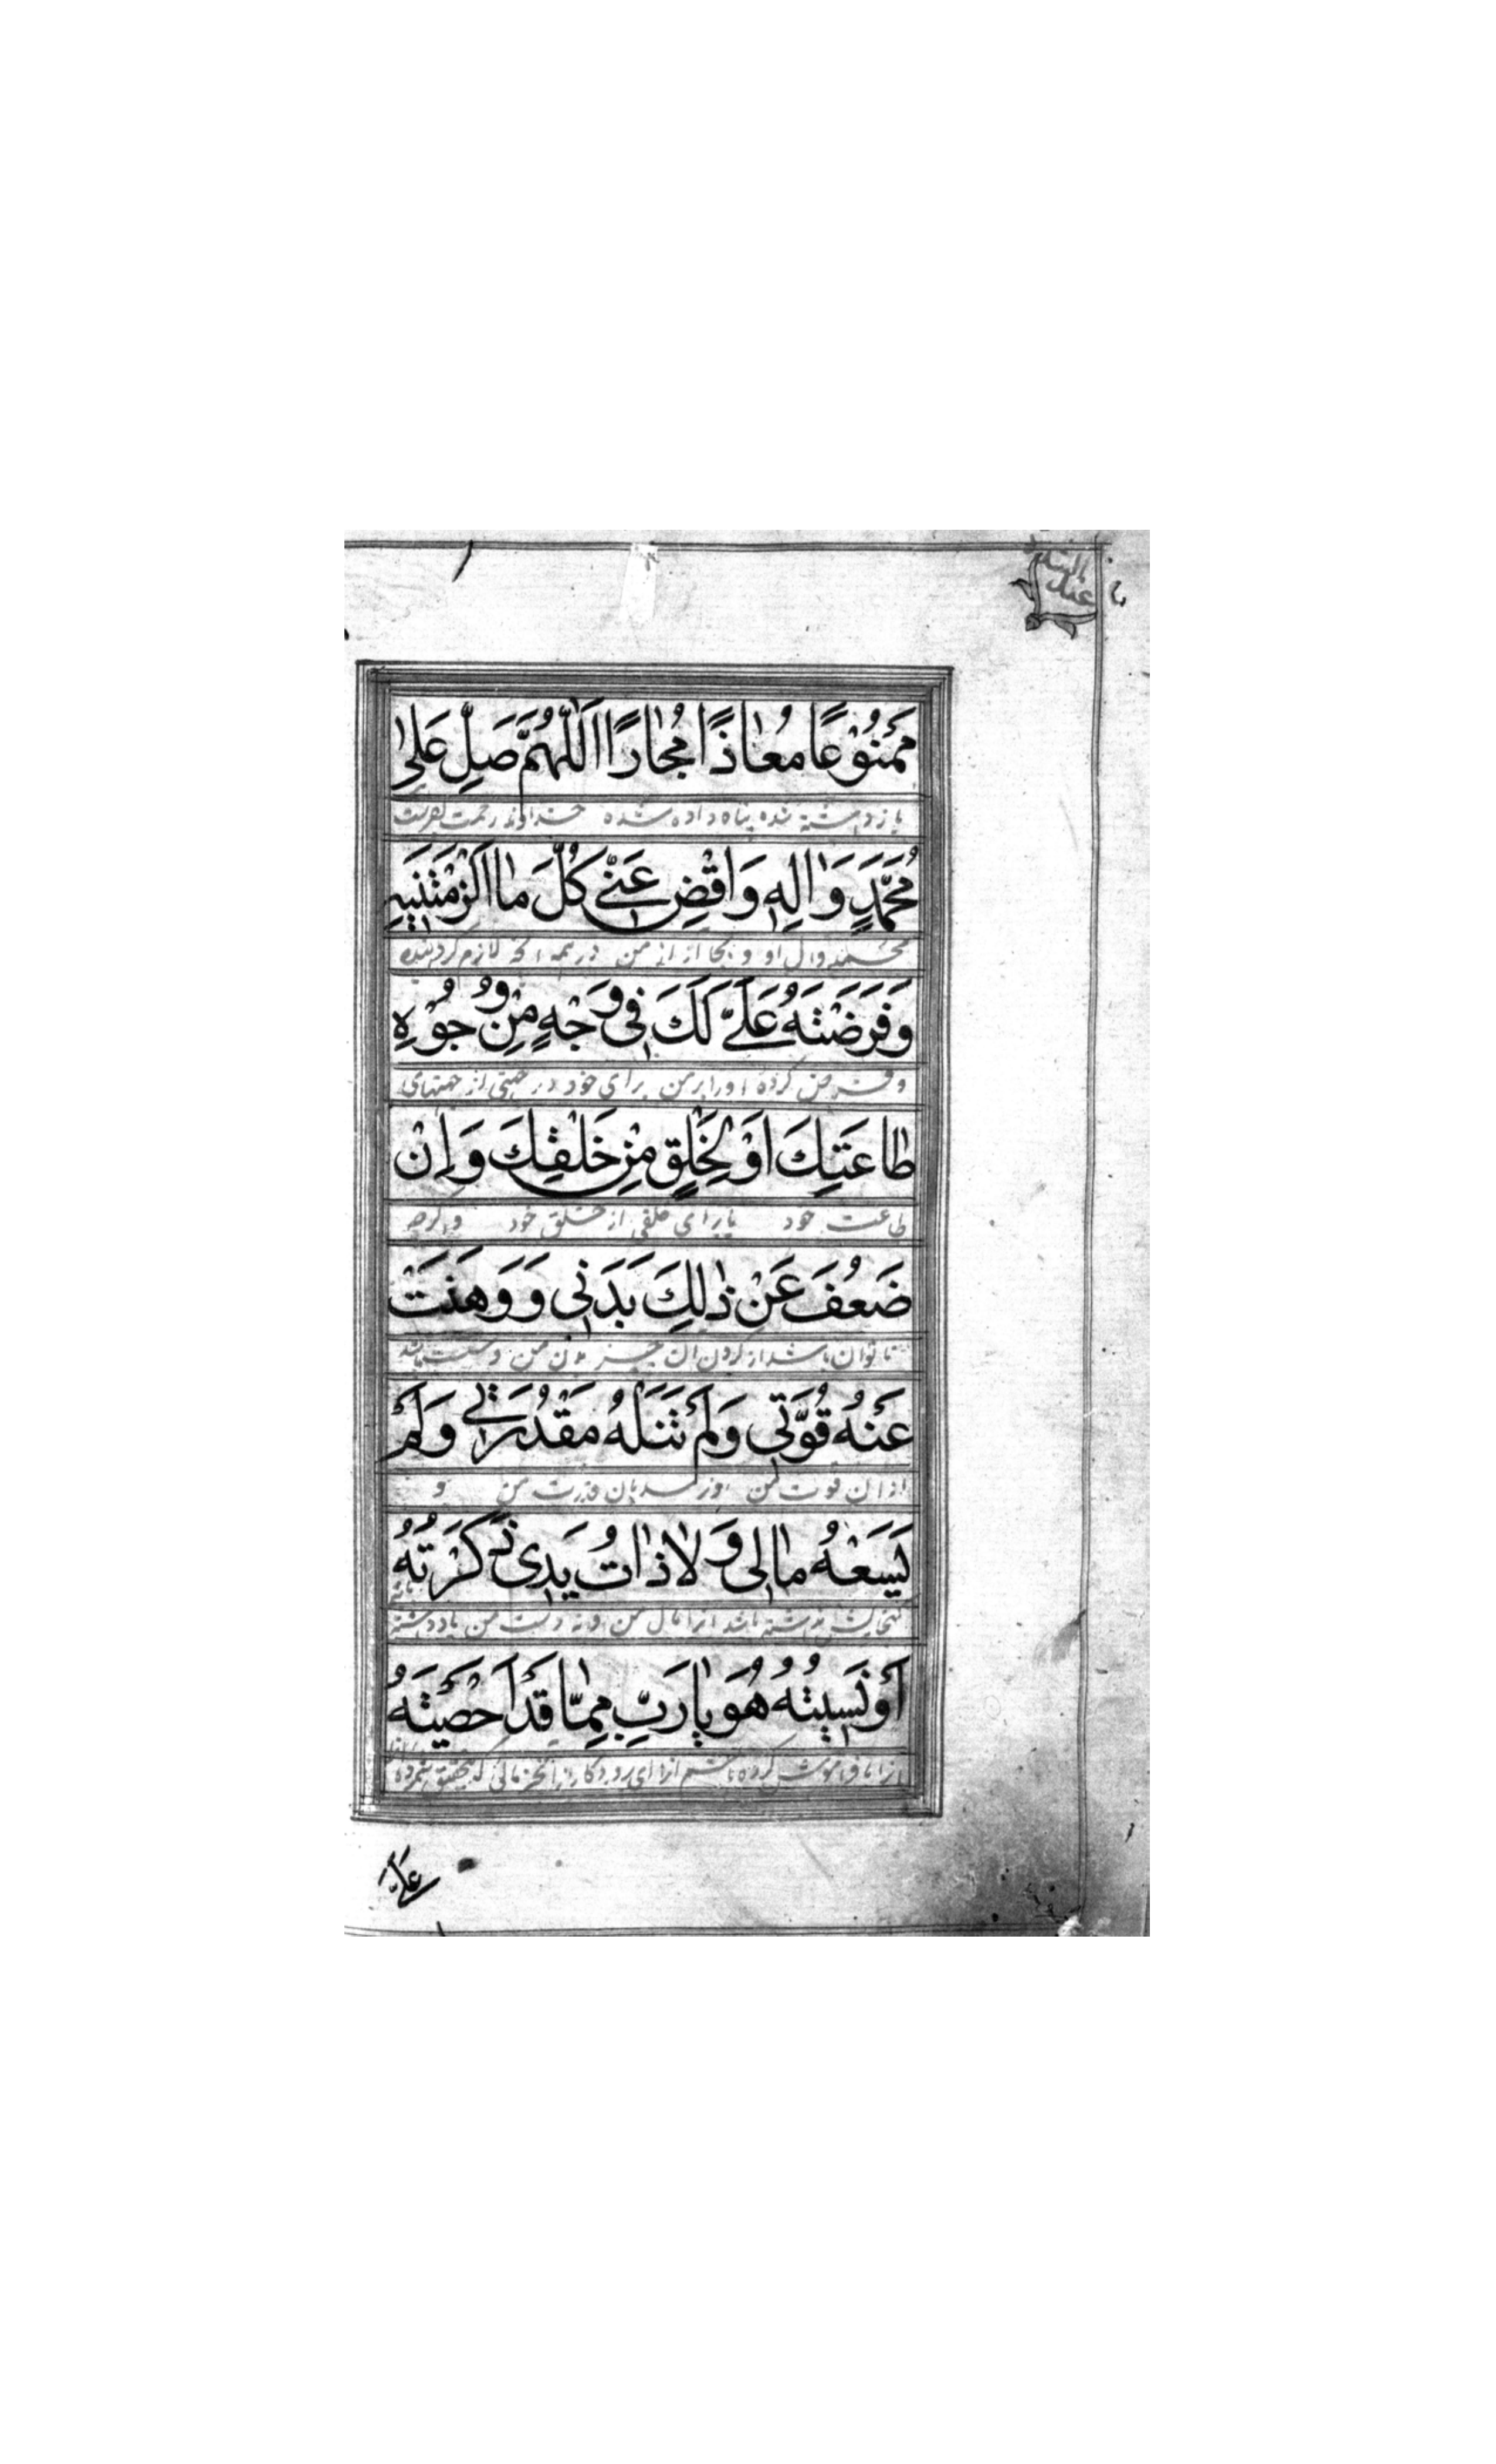 عند الشدة
مَمْنُوْعًا مُعٰاذًا مُجٰارًا اَللّٰهُمَّ صَلِّ عَلىٰ
بازداشته شده پناه داده شده خداوندا رحمت بفرست
مُحَمَّدٍ وَاٰلِهِ وَاقْضِ عَنّيْ كُلَّ مٰا اَلْزَمْتَنيهِ
محمد و ال او و بجا ار از من در همه انچه لازم کردانیده
وَفَرَضْتَهُ عَلَيَّ لَكَ فيٖ وَجْهٍ مِنْ وُجُوْهِ
و فرض کرده اورا بر من برای خود در جهتی از جهتهای
طٰاعَتِكَ اَوْ لِخَلْقٍ مِنْ خَلْقِكَ وَاِنْ
طاعت خود یا برای خلقی از خلق خود و اگرچه
ضَعُفَ عَنْ ذٰلِكَ بَدَنيٖ وَوَهَنَتْ
ناتوان باشد از کردن ان چیز بدن من و سست باشد
عَنْهُ قُوَّتيٖ وَلَمْ تَنَلْهُ مَقْدُرَتيٖ وَلَمْ
از ان قوت من و نرسد بان قدرت من و
يَسَعْهُ مٰاليٖ وَلاٰ ذٰاتُ يَديٖ ذَكَرْتُهُ
باشد انرا مال من و نه دست من یاد داشته
اَوْ نَسيٖتُهُ هُوَ يٰا رَبِّ مِمّٰا قَدْ اَحْصَيْتَهُ
انرا یا فراموش کرده باشم انرا ای پروردکار از انچیزهائی که بتحقیق شمرده
عَلَيَّ